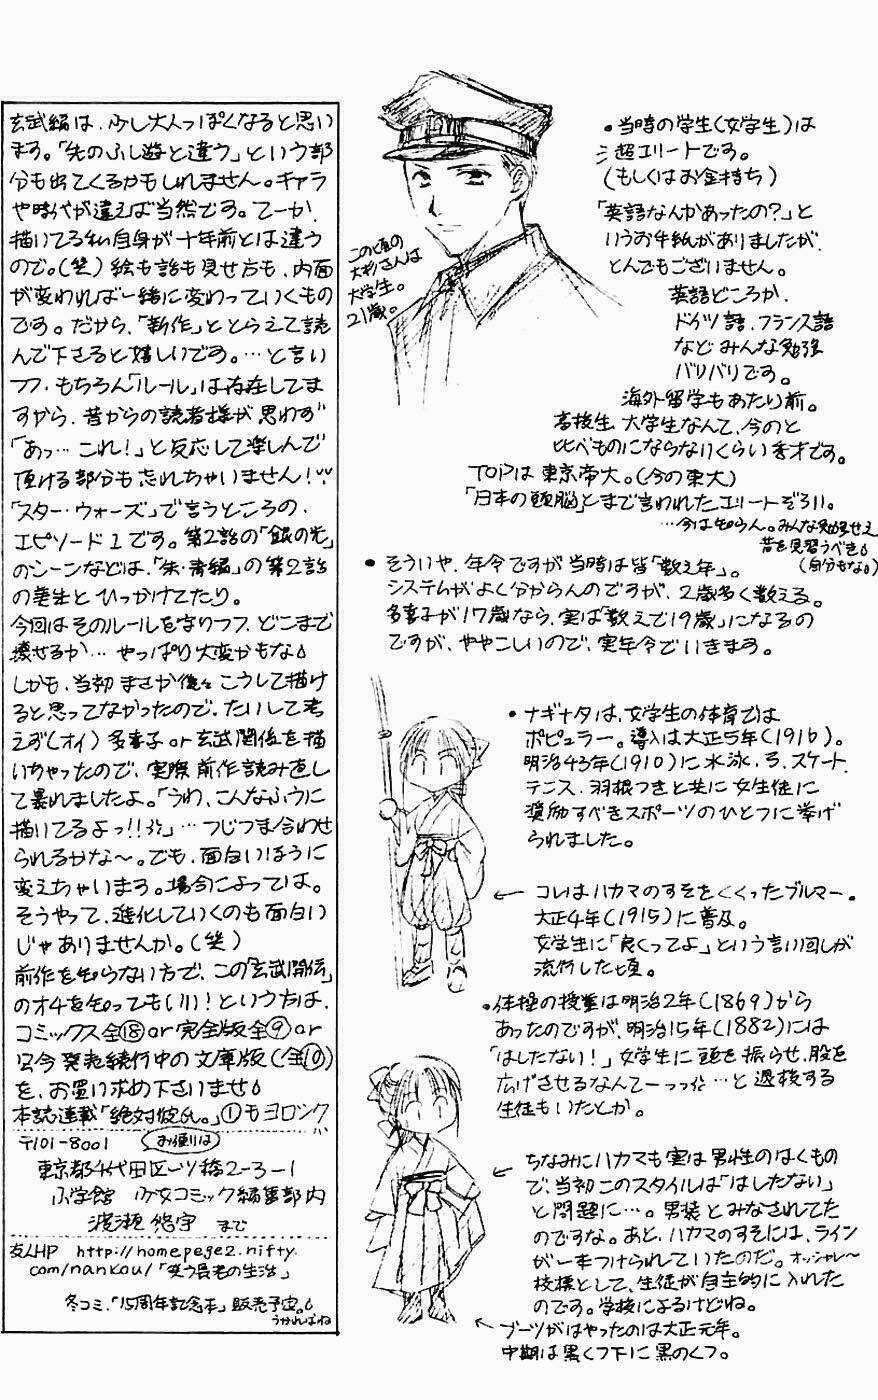 玄武編は、少し大人っぽくなると思い
ます。「先のふし遊と違う」という部
分も出てくるかもしれません。キャラ
や時代が違えば当然です。てーか、
描いてる私自身が十年前とは違う
ので。(笑)絵も話も見せ方も、内面
が変われば一緒に変わっていくもの
です。だから、「新作」ととらえて読
んで下さると嬉しいです。…と言い
つつ、もちろん「ルール」は存在してま
すから、昔からの読者様が思わず
「あっ…これ!」と反応して楽しんで
頂ける部分も忘れちゃいません!
「スター・ウォーズ」で言うところの、
エピソード1です。第2話の「銀の光」
のシーンなどは、「朱・青編」の第2話
の美朱とひっかけてたり。
今回はそのルールを守りつつ、どこまで
壊せるか…やっぱり大変かもな
しかも、当初まさか後々こうして描け
ると思ってなかったので、たいして考
えず(オイ)多喜子or玄武関係を描
いちゃったので、実際前作読み直し
て暴れましたよ。「うわ、こんなふうに
描いてるよっ!!」…つじつま合わせ
られるかな〜。でも、面白いほうに
変えちゃいます。場合によっては。
そうやって、進化していくのも面白い
じゃありませんか。(笑)
前作を知らない方で、この「玄武開伝」
のオチを知ってもいい!という方は、
コミックス全⑱or完全版全⑨or
只今発売続行中の文庫版(全⑩)
を、お買い求め下さいませ
本誌連載「絶対彼氏。」①もヨロシク
〒101-8001 お便りは
東京都千代田区一ツ橋2-3-1
小学館 少女コミック編集部内
渡瀬悠宇 まで
友人HP http://homepege2.nifty.
com/nankou/「笑う長老の生活」
冬コミ、「15周年記念本」販売予定。
うかればね
この頃の
大杉さんは
大学生。
21歳。
・当時の学生(女学生)は
超エリートです。
(もしくはお金持ち)
「英語なんかあったの?」と
いうお手紙がありましたが、
とんでもございません。
英語どころか、
ドイツ語、フランス語
などみんな勉強
バリバリです。
海外留学もあたり前。
高校生、大学生なんて、今のと
比べものにならないくらい秀才です。
TOPは東京帝大。(今の東大)
「日本の頭脳」とまで言われたエリートぞろい。
…今は知らん。みんな勉強せえ
昔を見習うべき
(自分もな)
・そういや、年令ですが当時は皆「数え年」。
システムがよく分からんのですが、2歳多く数える。
多喜子が17歳なら、実は「数えで19歳」になるの
ですが、ややこしいので、実年令でいきます。
・ナギナタは、女学生の体育では
ポピュラー。導入は大正5年(1916)。
明治43年(1910)に水泳、弓、スケート、
テニス、羽根つきと共に女生徒に
奨励すべきスポーツのひとつに挙げ
られました。
← コレはハカマのすそをくくったブルマー。
大正4年(1915)に普及。
女学生に「良くってよ」という言い回しが
流行した頃。
・体操の授業は明治2年(1869)から
あったのですが、明治15年(1882)には
「はしたない!」女学生に頭を振らせ、股を
広げさせるなんてーっっ…と退校する
生徒もいたとか。
← ちなみにハカマも実は男性のはくもの
で、当初このスタイルは「はしたない」
と問題に…。男装とみなされてた
のですな。あと、ハカマのすそには、ライン
が一本つけられていたのだ。オッシャレ〜
校標として、生徒が自主的に入れた
のです。学校によるけどね。
← ブーツがはやったのは大正元年。
中期は黒くつ下に黒のくつ。